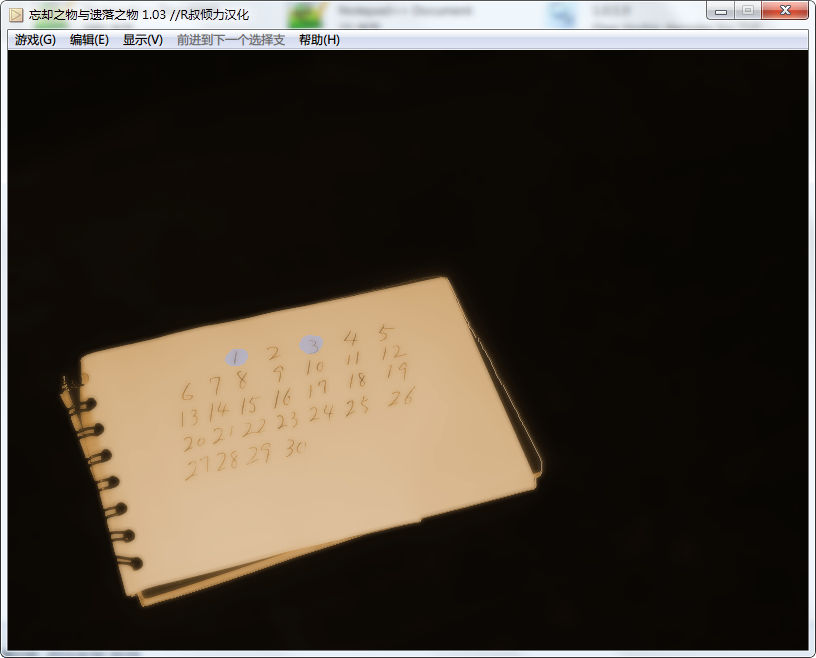 忘却之物与遗落之物 1.03 //R叔倾力汉化
游戏(G) 编辑(E) 显示(V) 前进到下一个选择支 帮助(H)
1 2 3 4 5
6 7 8 9 10 11 12
13 14 15 16 17 18 19
20 21 22 23 24 25 26
27 28 29 30